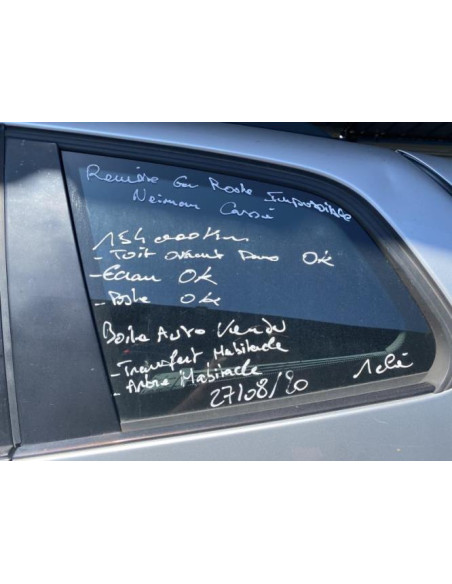 Remise En Route Impossible
Neiman Cassé
154 000 Km
- Toit ouvrant Pano OK
- Ecran OK
- Poste OK
Boite Auto Vendu
- Transfert Habitacle
- Arbre Habitacle
27/08/20 1 clé